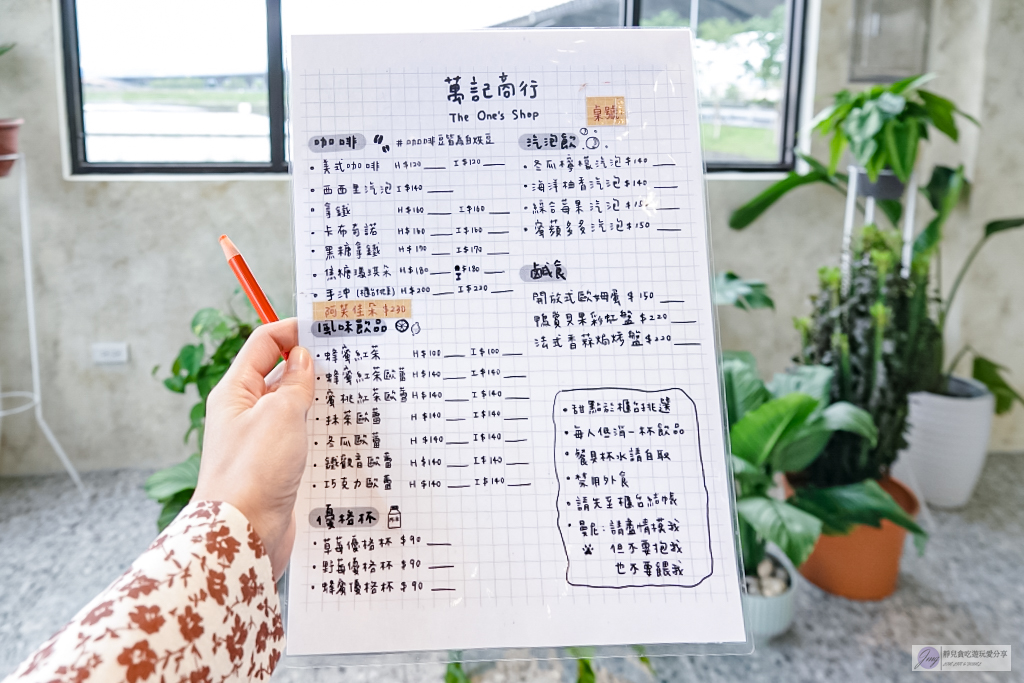 萬記商行
The One's Shop
桌號
咖啡 #咖啡豆皆為自烘豆
・美式咖啡 H $120 I $120
・西西里汽泡 I $140
・拿鐵 H $160 I $160
・卡布奇諾 H $160 I $160
・黑糖拿鐵 H $170 I $170
・焦糖瑪淇朵 H $180 I $180
・手沖 H $200 I $220
阿芙佳朵 $230
風味飲品
・蜂蜜紅茶 H $100 I $100
・蜂蜜紅茶歐蕾 H $140 I $140
・蜜桃紅茶歐蕾 H $140 I $140
・抹茶歐蕾 H $140 I $140
・冬瓜歐蕾 H $140 I $140
・鐵觀音歐蕾 H $140 I $140
・巧克力歐蕾 H $140 I $140
優格杯
・草莓優格杯 $90
・野莓優格杯 $90
・蜂蜜優格杯 $90
汽泡飲
・冬瓜檸檬汽泡 $140
・海洋柚香汽泡 $140
・綜合莓果汽泡 $150
・蜜蘋多多汽泡 $150
鹹食
開放式歐姆蛋 $150
鴨賞貝果彩虹盤 $220
法式香蒜焗烤盤 $220
・甜點於櫃台挑選
・每人低消一杯飲品
・餐具杯水請自取
・禁用外食
・請先至櫃台結帳
・曼尼:請盡情摸我
但不要抱我
也不要餵我
靜兒貪吃遊玩愛分享